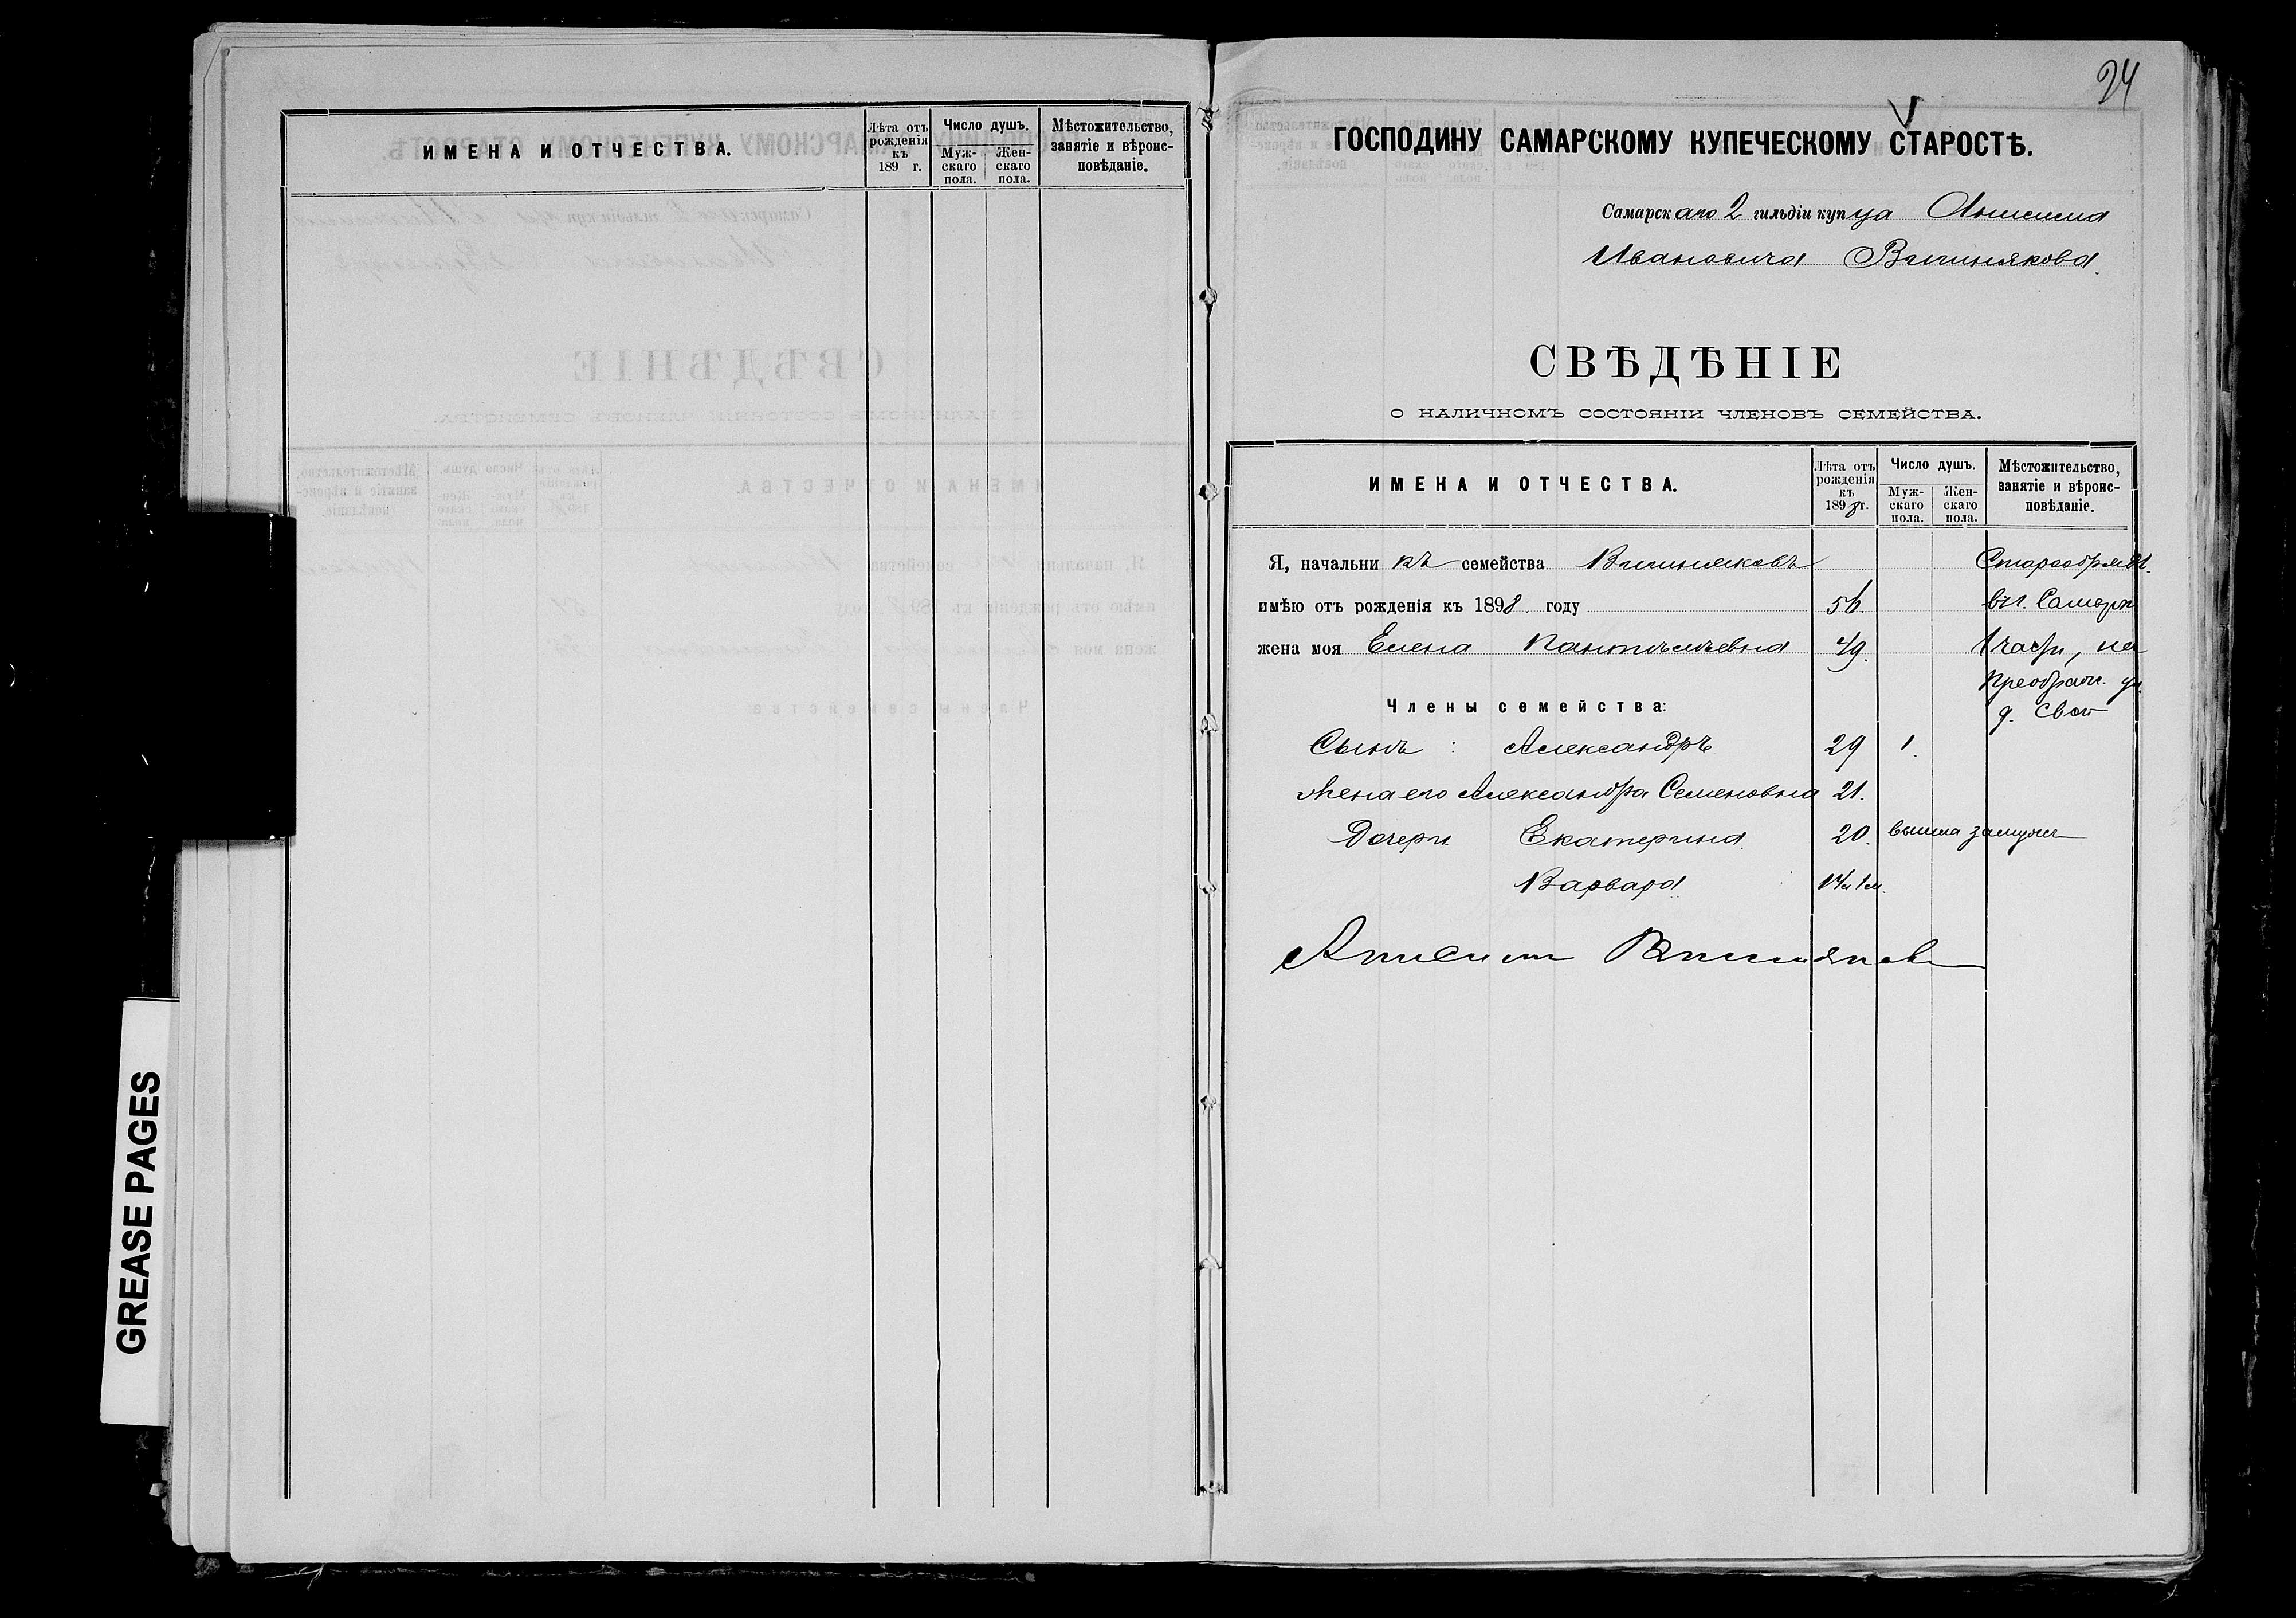 ИМЕНА И ОТЧЕСТВА.
Лѣта отъ рожденія къ 189 г.
Число душъ.
Мужскаго пола.
Женскаго пола.
Мѣстожительство, занятіе и вѣроисповѣданіе.
24
ГОСПОДИНУ САМАРСКОМУ КУПЕЧЕСКОМУ СТАРОСТѢ.
Самарскаго 2 гильдіи купца Анисима
Ивановича Вишнякова.
СВѢДѢНІЕ
О НАЛИЧНОМЪ СОСТОЯНІИ ЧЛЕНОВЪ СЕМЕЙСТВА.
ИМЕНА И ОТЧЕСТВА.
Лѣта отъ рожденія къ 1898 г.
Число душъ.
Мужскаго пола.
Женскаго пола.
Мѣстожительство, занятіе и вѣроисповѣданіе.
Я, начальникъ семейства Вишняковъ
Старообряд.
имѣю отъ рожденія къ 1898 году 56.
въ г. Самарѣ
жена моя Елена Пантелѣевна 49.
1 части, на
Преображ. ул.
д. свой
Члены семейства:
Сынъ: Александръ 29 1.
Жена его Александра Семеновна 21.
Дочери Екатерина 20. вышла замужъ
Варвара 14 и 1 м.
Анисим Вишняков
GREASE PAGES